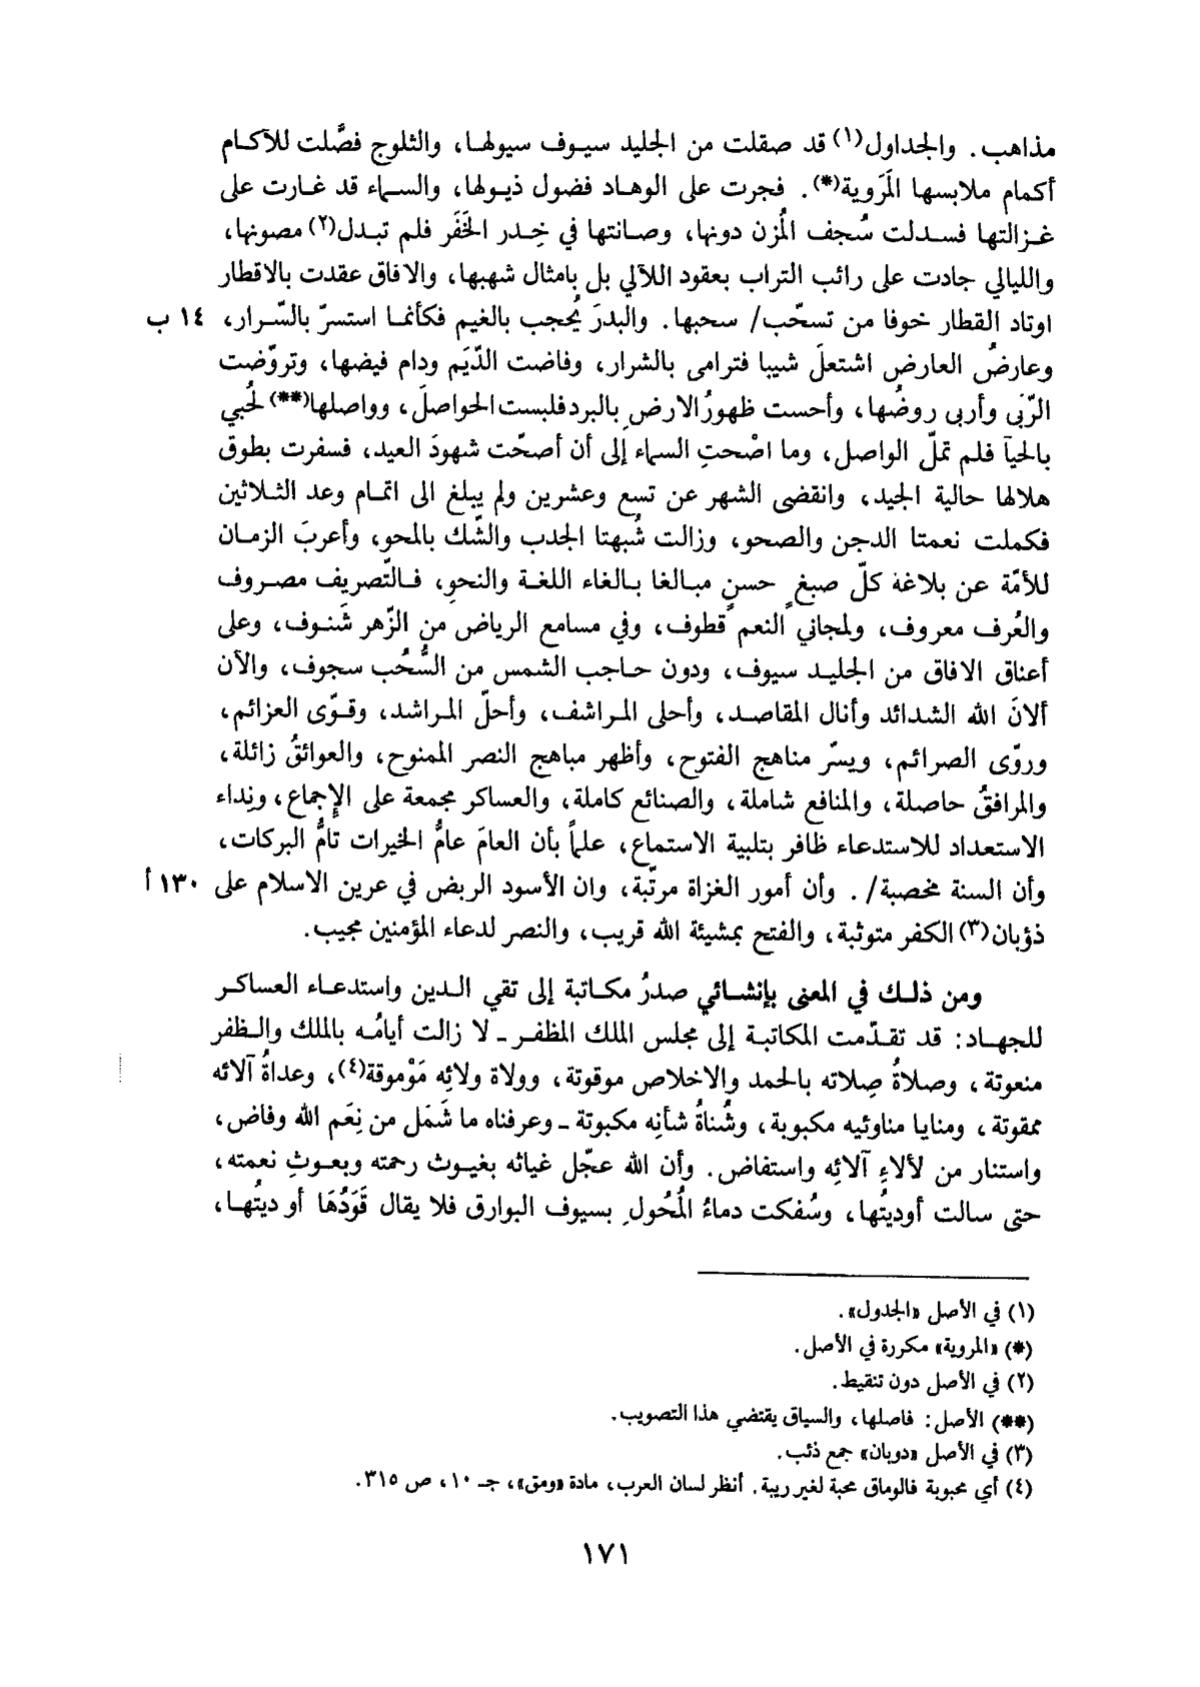 مذاهب. والجداول(١) قد صقلت من الجليد سيوف سيولها، والثلوج فصَّلت للآكام
أكمام ملابسها المَروية(*). فجرت على الوهاد فضول ذيولها، والسماء قد غارت على
غزالتها فسدلت سُجف المُزن دونها، وصانتها في خِدر الخَفَر فلم تبدل(٢) مصونها،
والليالي جادت على رائب التراب بعقود اللآلي بل بامثال شهبها، والافاق عقدت بالاقطار
اوتاد القطار خوفا من تسحّب/ سحبها. والبدرَ يُحجب بالغيم فكأنما استسرّ بالسّرار، ١٤ ب
وعارضُ العارض اشتعلَ شيبا فترامى بالشرار، وفاضت الدّيَم ودام فيضها، وتروّضت
الرّبَى وأربى روضُها، وأحست ظهورُ الارضِ بالبرد فلبست الحواصلَ، وواصلها(**) لحُبي
بالحيآ فلم تملّ الواصل، وما اضْحتِ السماء إلى أن أصحّت شهودَ العيد، فسفرت بطوق
هلالها حالية الجيد، وانقضى الشهر عن تسع وعشرين ولم يبلغ الى اتمام وعد الثلاثين
فكملت نعمتا الدجن والصحو، وزالت شُبهتا الجدب والشّك بالمحو، وأعربَ الزمان
للأمّة عن بلاغة كلّ صبغٍ حسنٍ مبالغا بالغاء اللغة والنحوِ، فالتّصريف مصروف
والعُرف معروف، ولمجاني النعم قطوف، وفي مسامع الرياض من الزّهر شَنوف، وعلى
أعناق الافاق من الجليد سيوف، ودون حاجب الشمس من السُّحُب سجوف، والآن
ألانَ الله الشدائد وأنال المقاصد، وأحلى المراشف، وأحلّ المراشد، وقوّى العزائم،
وروّى الصرائم، ويسرّ مناهج الفتوح، وأظهر مباهج النصر الممنوح، والعوائقُ زائلة،
والمرافقُ حاصلة، والمنافع شاملة، والصنائع كاملة، والعساكر مجمعة على الإجماع، ونِداء
الاستعداد للاستدعاء ظافر بتلبية الاستماع، علماً بأن العامَ عامُّ الخيرات تامُّ البركات،
وأن السنة مخصبة/. وأن أمور الغزاة مرتّبة، وان الأسود الربض في عرين الاسلام على ١٣٠ أ
ذؤبان(٣) الكفر متوثبة، والفتح بمشيئة الله قريب، والنصر لدعاء المؤمنين مجيب.
ومن ذلك في المعنى بإنشائي صدرُ مكاتبة إلى تقي الدين واستدعاء العساكر
للجهاد: قد تقدّمت المكاتبة إلى مجلس الملك المظفر ـ لا زالت أيامُه بالملك والظفر
منعوتة، وصلاةُ صِلاته بالحمد والاخلاص موقوتة، وولاة ولائِه مَوْموقة(٤)، وعداةُ آلائه
ممقوتة، ومنايا مناوئيه مكبوبة، وشُناةُ شأنِه مكبوتة ـ وعرفناه ما شَمَل من نِعَم الله وفاض،
واستنار من لألاءِ آلائِه واستفاض. وأن الله عجّل غياثه بغيوث رحمته وبعوثِ نعمته،
حتى سالت أوديتُها، وسُفكت دماءُ المُحُولِ بسيوف البوارق فلا يقال قَوَدُهَا أو ديتُها،
(١) في الأصل «الجدول».
(*) «المروية» مكررة في الأصل.
(٢) في الأصل دون تنقيط.
(**) الأصل: فاصلها، والسياق يقتضي هذا التصويب.
(٣) في الأصل «دوبان» جمع ذئب.
(٤) أي محبوبة فالوماق محبة لغير ريبة. أنظر لسان العرب، مادة «ومق»، جـ ١٠، ص ٣١٥.
١٧١